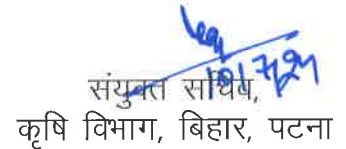 संयुक्त सचिव,
कृषि विभाग, बिहार, पटना